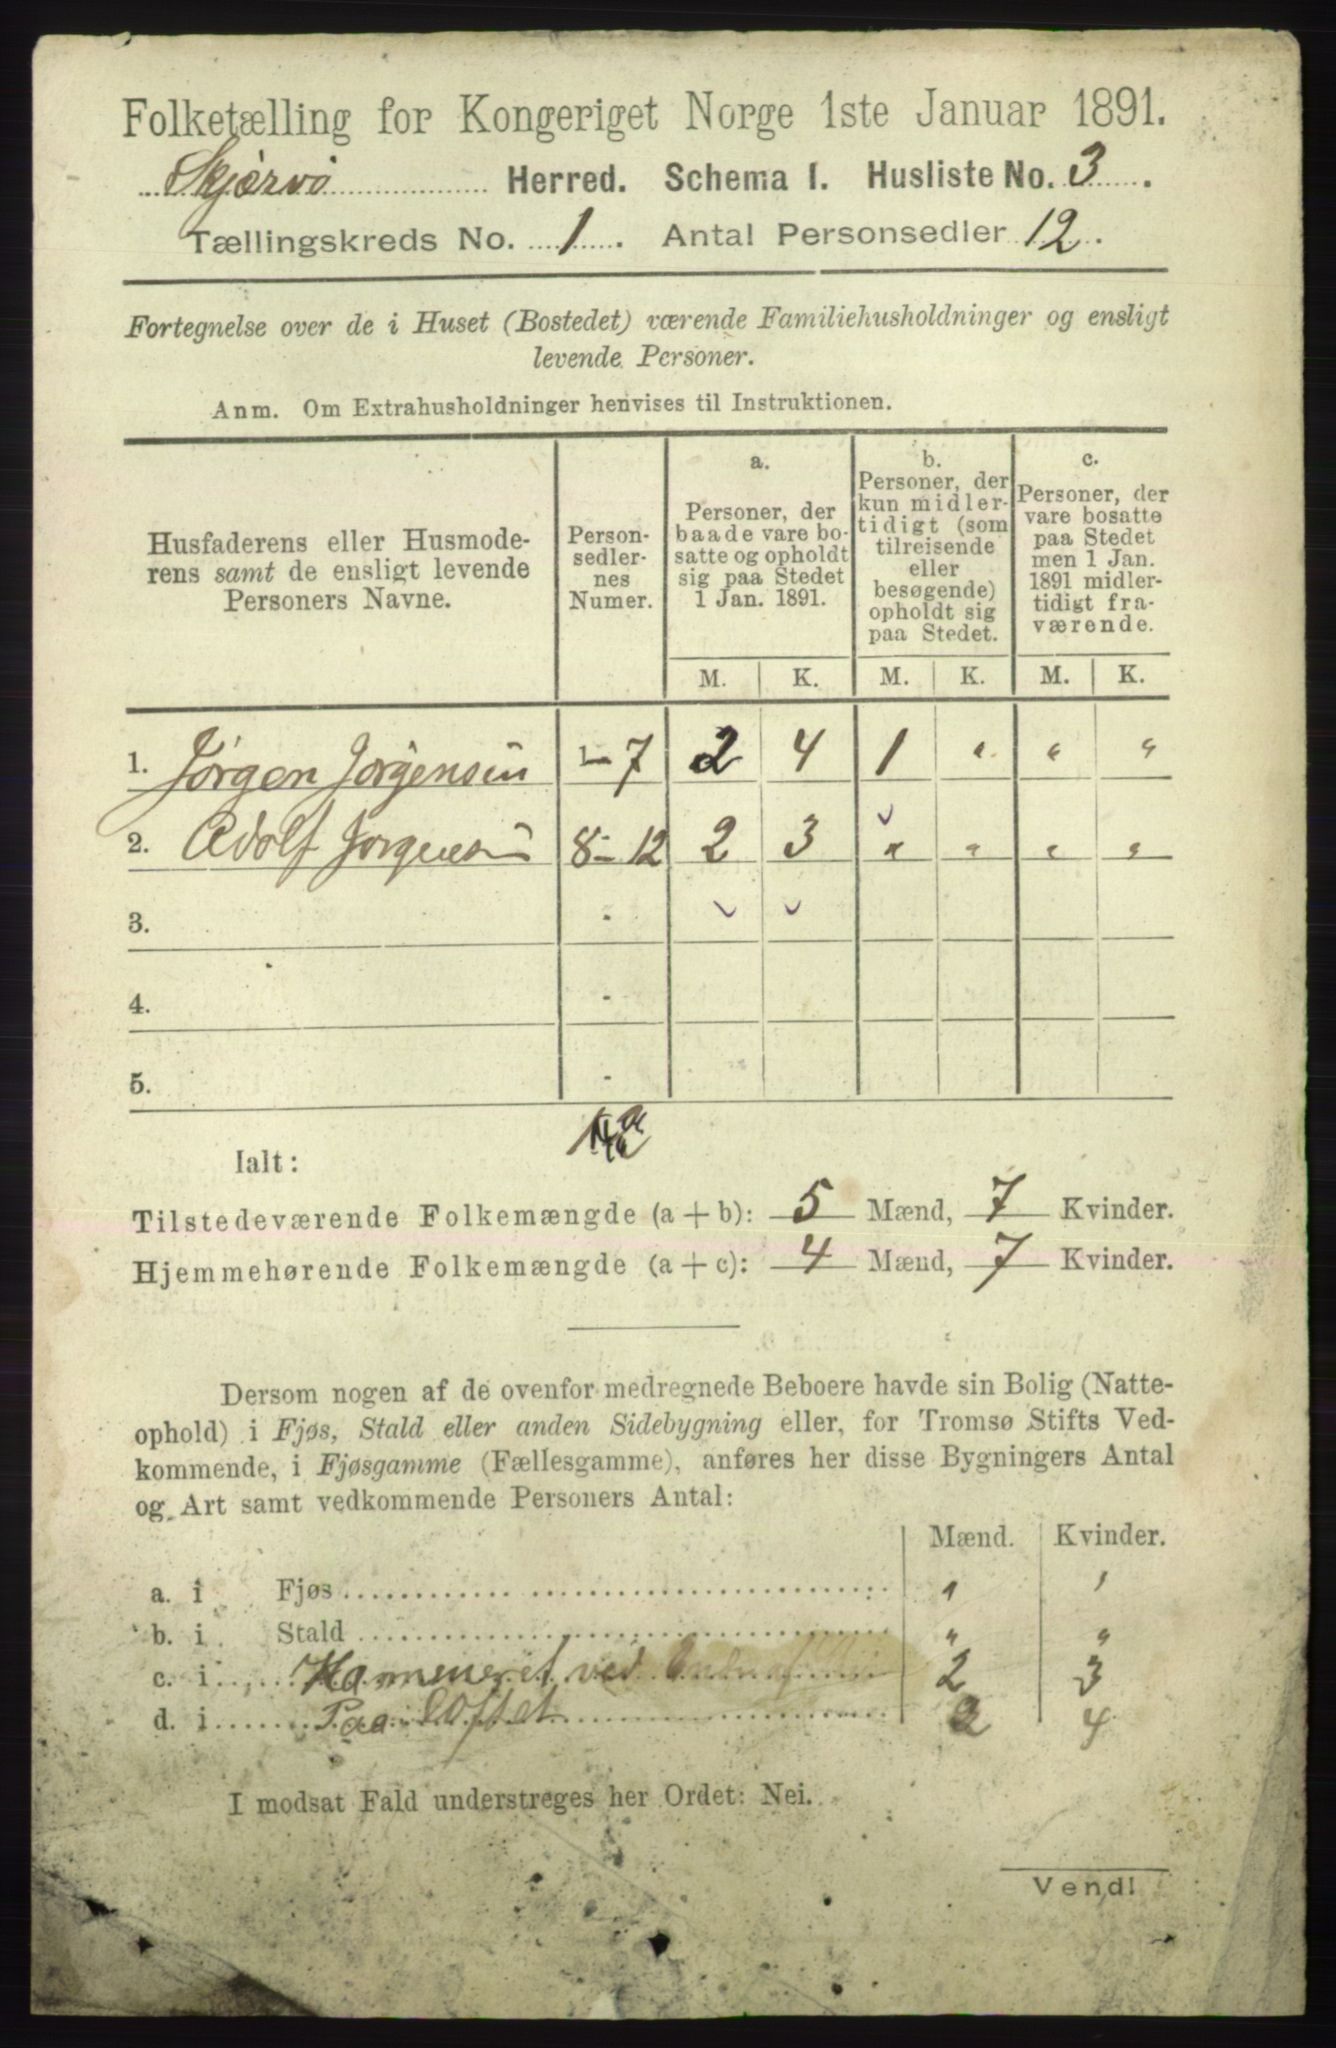 Folketælling for Kongeriget Norge 1ste Januar 1891.
Skjervø Herred. Schema I. Husliste No. 3.
Tællingskreds No. 1. Antal Personsedler 12.
Fortegnelse over de i Huset (Bostedet) værende Familiehusholdninger og ensligt
levende Personer.
Anm. Om Extrahusholdninger henvises til Instruktionen.
Husfaderens eller Husmode-
rens samt de ensligt levende
Personers Navne.
Person-
sedler-
nes
Numer.
a.
Personer, der
baade vare bo-
satte og opholdt
sig paa Stedet
1 Jan. 1891.
b.
Personer, der
kun midler-
tidigt (som
tilreisende
eller
besøgende)
opholdt sig
paa Stedet.
c.
Personer, der
vare bosatte
paa Stedet
men 1 Jan.
1891 midler-
tidigt fra-
værende.
M. K. M. K. M. K.
1. Jørgen Jørgensen 1-7 2 4 1 " " "
2. Adolf Jørgensen 8-12 2 3 " " " "
3. -
4. -
5. -
Ialt:
Tilstedeværende Folkemængde (a + b): 5 Mænd, 7 Kvinder.
Hjemmehørende Folkemængde (a + c): 4 Mænd, 7 Kvinder.
Dersom nogen af de ovenfor medregnede Beboere havde sin Bolig (Natte-
ophold) i Fjøs, Stald eller anden Sidebygning eller, for Tromsø Stifts Ved-
kommende, i Fjøsgamme (Fællesgamme), anføres her disse Bygningers Antal
og Art samt vedkommende Personers Antal:
Mænd. Kvinder.
a. i Fjøs " "
b. i Stald " "
c. i Kammeret ved 2 3
d. i Paa Loftet 2 4
I modsat Fald understreges her Ordet: Nei.
Vend!